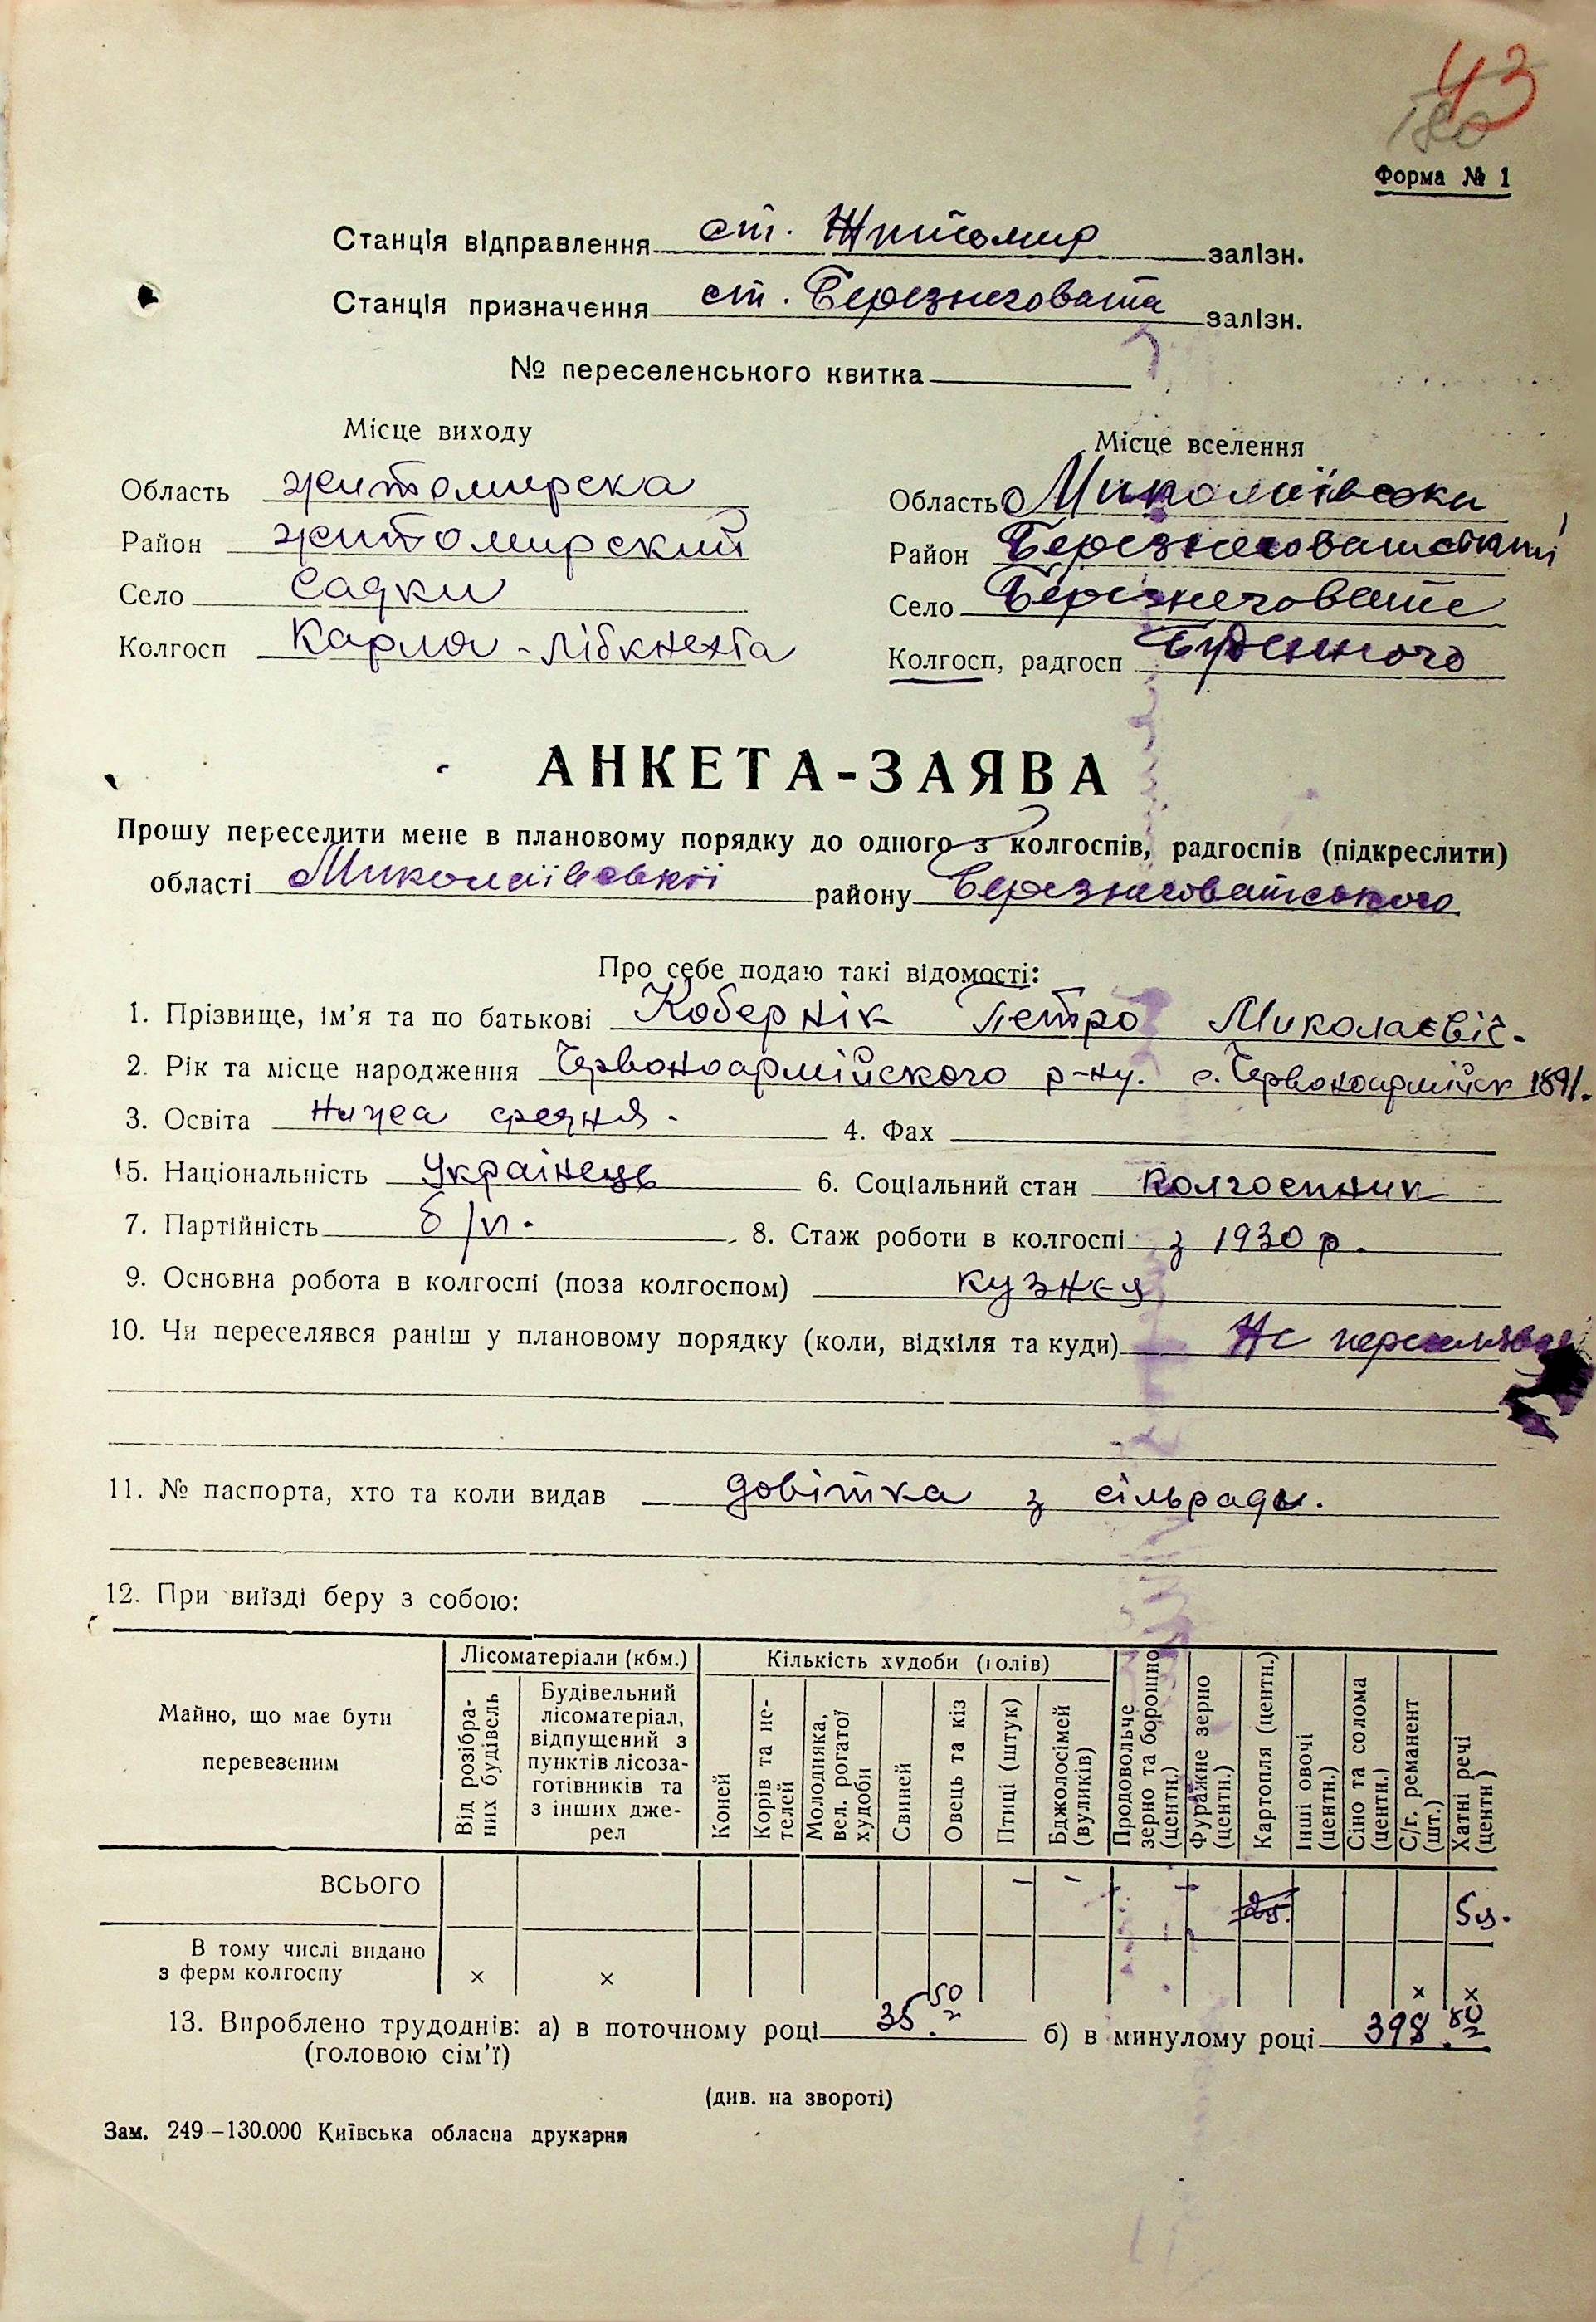 43
180
Форма № 1
Станція відправлення ст. Житомир залізн.
Станція призначення ст. Березнеговата залізн.
№ переселенського квитка
Місце виходу
Місце вселення
Область житомирска
Область Миколаївська
Район житомирский
Район Березнеговатський
Село Садки
Село Березнеговате
Колгосп Карла-Лібкнехта
Колгосп, радгосп Буденного
АНКЕТА-ЗАЯВА
Прошу переселити мене в плановому порядку до одного з колгоспів, радгоспів (підкреслити)
області Миколаївської району Березнеговатського
Про себе подаю такі відомості:
1. Прізвище, ім’я та по батькові Кобернік Петро Миколаєвіч.
2. Рік та місце народження Червоноармійского р-ну. с. Червоноармійск 1891.
3. Освіта нижа средня. 4. Фах
5. Національність Украінець 6. Соціальний стан колгоспник
7. Партійність б/п. 8. Стаж роботи в колгоспі з 1930 р.
9. Основна робота в колгоспі (поза колгоспом) кузнєя
10. Чи переселявся раніш у плановому порядку (коли, відкіля та куди) Не переселявся
11. № паспорта, хто та коли видав довітка з сільради.
12. При виїзді беру з собою:
Майно, що має бути перевезеним
Лісоматеріали (кбм.)
Кількість худоби (голів)
Від розібраних будівель
Будівельний лісоматеріал, відпущений з пунктів лісозаготівників та з інших джерел
Коней
Корів та нетелей
Молодняка, вел. рогатої худоби
Свиней
Овець та кіз
Птиці (штук)
Бджолосімей (вуликів)
Продовольче зерно та борошно (центн.)
Фуражне зерно (центн.)
Картопля (центн.)
Інші овочі (центн.)
Сіно та солома (центн.)
С/г. реманент (шт.)
Хатні речі (центн)
ВСЬОГО – – – – 5ц.
В тому числі видано
з ферм колгоспу × × × ×
13. Вироблено трудоднів: а) в поточному році 35.50 б) в минулому році 398.80
(головою сім’ї)
(див. на звороті)
Зам. 249–130.000 Київська обласна друкарня